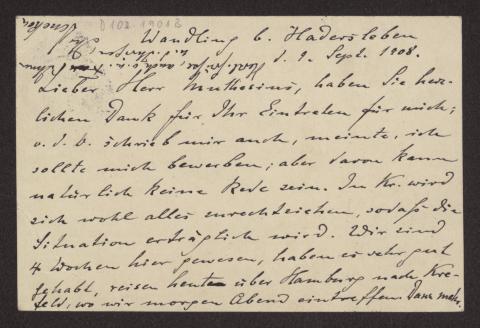 D 102-1901 B
Wandling b. Hadersleben
d. 9. Sept. 1908.
Lieber Herr Muthesius, haben Sie herz-
lichen Dank für Ihr Eintreten für mich;
v. d. V. schrieb mir auch, meinte, ich
sollte mich bewerben; aber davon kann
natürlich keine Rede sein. In Kr. wird
sich wohl alles zurechtziehen, sodaß die
Situation erträglich wird. Wir sind
4 Wochen hier gewesen, haben es sehr gut
gehabt, reisen heute über Hamburg nach Kre-
feld, wo wir morgen Abend eintreffen. Dann mehr.